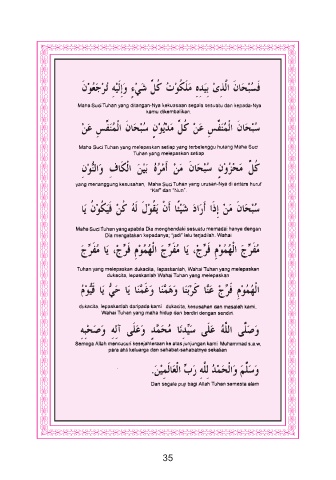 فَسُبْحَانَ الَّذِيْ بِيَدِهِ مَلَكُوْتُ كُلِّ شَيْءٍ وَإِلَيْهِ تُرْجَعُوْنَ
Maha Suci Tuhan yang ditangan-Nya kekuasaan segala sesuatu dan kepada-Nya
kamu dikembalikan.
سُبْحَانَ الْمُنَفِّسِ عَنْ كُلِّ مَدْيُوْنٍ سُبْحَانَ الْمُنَفِّسِ عَنْ
Maha Suci Tuhan yang melepaskan setiap yang terbelenggu hutang Maha Suci
Tuhan yang melepaskan setiap
كُلِّ مَحْزُوْنٍ سُبْحَانَ مَنْ أَمْرُهُ بَيْنَ الْكَافِ وَالنُّوْنِ
yang menanggung kesusahan, Maha Suci Tuhan yang urusan-Nya di antara huruf
"Kaf" dan "Nun".
سُبْحَانَ مَنْ إِذَا أَرَادَ شَيْئًا أَنْ يَقُوْلَ لَهُ كُنْ فَيَكُوْنُ يَا
Maha Suci Tuhan yang apabila Dia menghendaki sesuatu memadai hanya dengan
Dia mengatakan kepadanya, "jadi" lalu terjadilah. Wahai
مُفَرِّجَ الْهُمُوْمِ فَرِّجْ، يَا مُفَرِّجَ الْهُمُوْمِ فَرِّجْ، يَا مُفَرِّجَ
Tuhan yang melepaskan dukacita, lepaskanlah, Wahai Tuhan yang melepaskan
dukacita, lepaskanlah Wahai Tuhan yang melepaskan
الْهُمُوْمِ فَرِّجْ عَنَّا كَرْبَنَا وَهَمَّنَا وَغَمَّنَا يَا حَيُّ يَا قَيُّوْمُ
dukacita, lepaskanlah daripada kami dukacita, kesusahan dan masalah kami,
Wahai Tuhan yang maha hidup dan berdiri dengan sendiri
وَصَلَّى اللَّهُ عَلَى سَيِّدِنَا مُحَمَّدٍ وَعَلَى آلِهِ وَصَحْبِهِ
Semoga Allah mencucuri kesejahteraan ke atas junjungan kami Muhammad s.a.w,
para ahli keluarga dan sahabat-sahabatnya sekalian
وَسَلَّمَ وَالْحَمْدُ لِلَّهِ رَبِّ الْعَالَمِيْنَ.
Dan segala puji bagi Allah Tuhan semesta alam
35